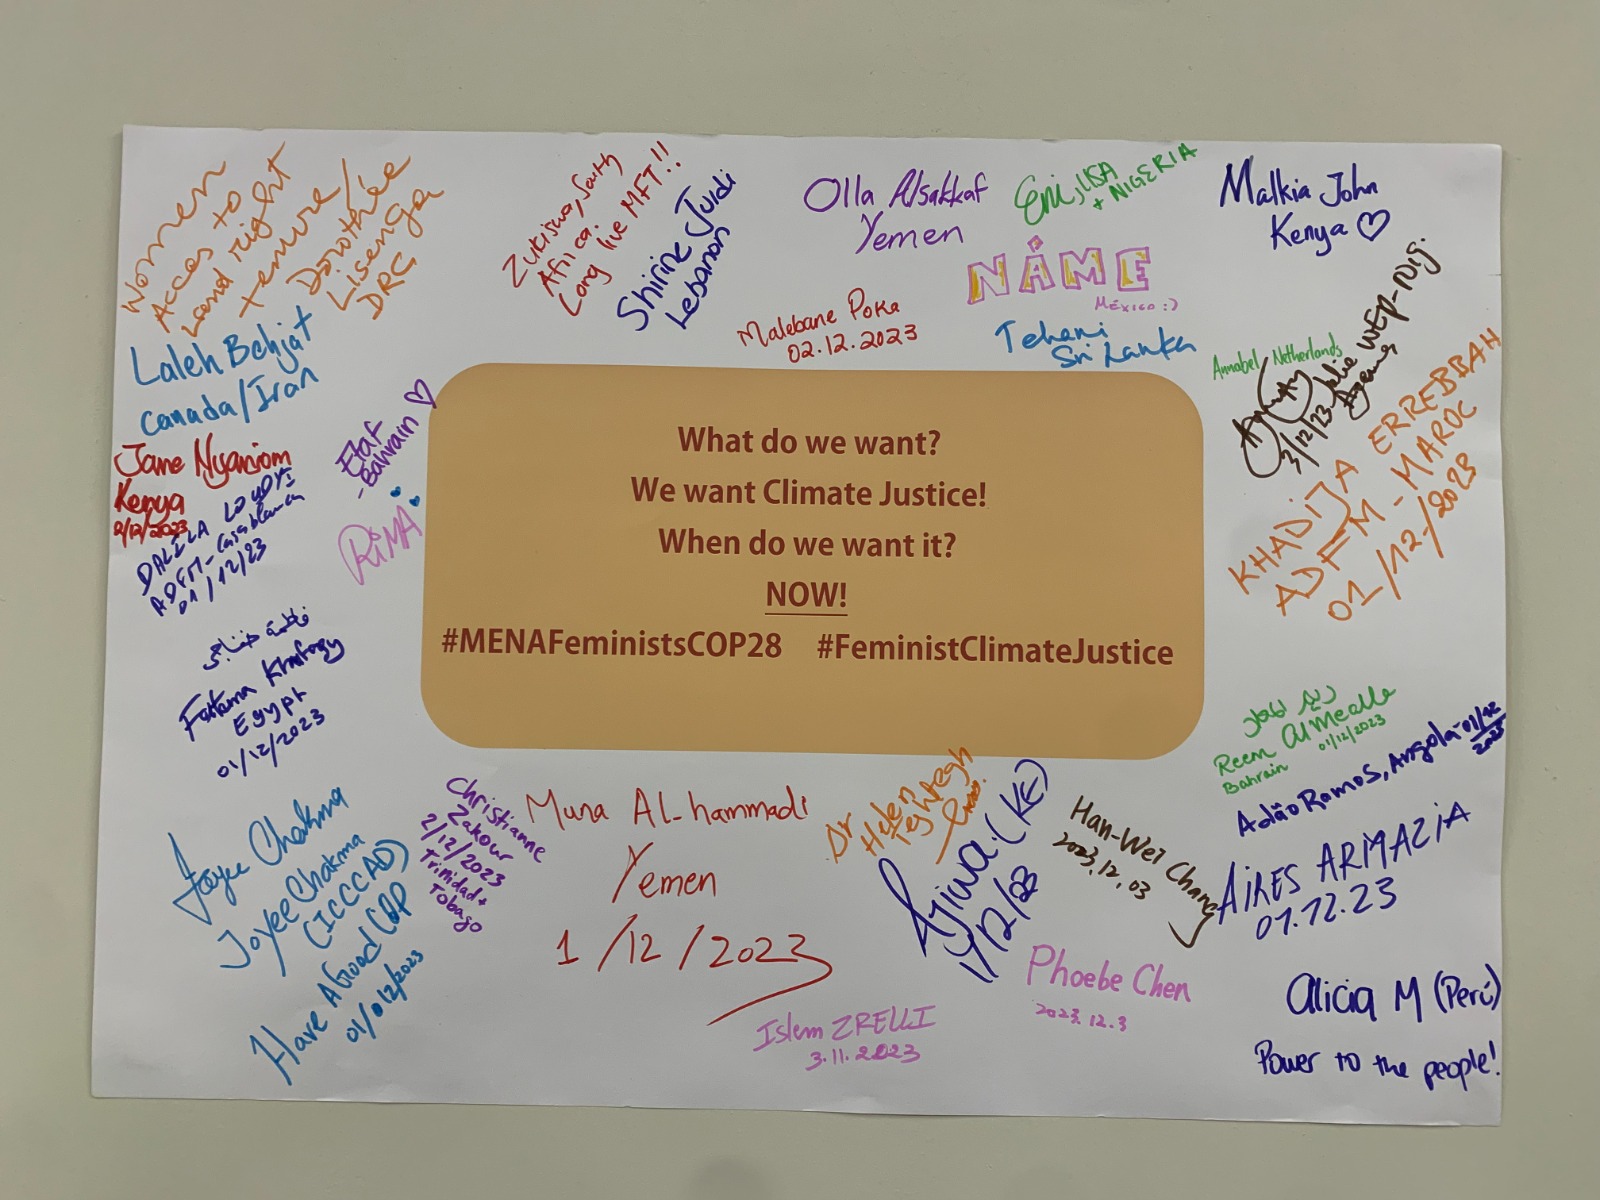 Women
Acces to
Land right
tenure/
Dorothée
Lisenga
DRC
Laleh Behjat
Canada/Iran
Jane Nyamiom
Kenya
2/12/2023
DALILA LOUDYI
ADFM-Casablanca
01/12/23
Etaf
-Bahrain
RiMA
Fatema Khafagy
Egypt
01/12/2023
Joyee Chakma
Joyee Chakma
(ICCCAD)
Have A Good COP
01/012/2023
Zukiswa, South
Africa.
Long live MFT!!
Shirine Jurdi
Lebanon
Malebane Poka
02.12.2023
Olla Alsakkaf
Yemen
Eni, USA
+ NIGERIA
NAME
México :)
Tehani
Sri Lanka
Malkia John
Kenya
Annabel Netherlands
3/12/23
KHADIJA ERREBBAH
ADFM-MAROC
01/12/2023
What do we want?
We want Climate Justice!
When do we want it?
NOW!
#MENAFeministsCOP28 #FeministClimateJustice
Reem AlMealla
01/12/2023
Bahrain
Adão Ramos, Angola-01/12
2023
AiRES ARMAZIA
01.12.23
Alicia M (Perú)
Power to the people!
Christianne
Zakour
2/12/2023
Trinidad +
Tobago
Muna AL-hammadi
Yemen
1/12/2023
Dr
Helen
(KE)
1/12/23
Han-Wei Chang
2023.12.03
Phoebe Chen
2023.12.3
Islem ZRELLI
3.11.2023